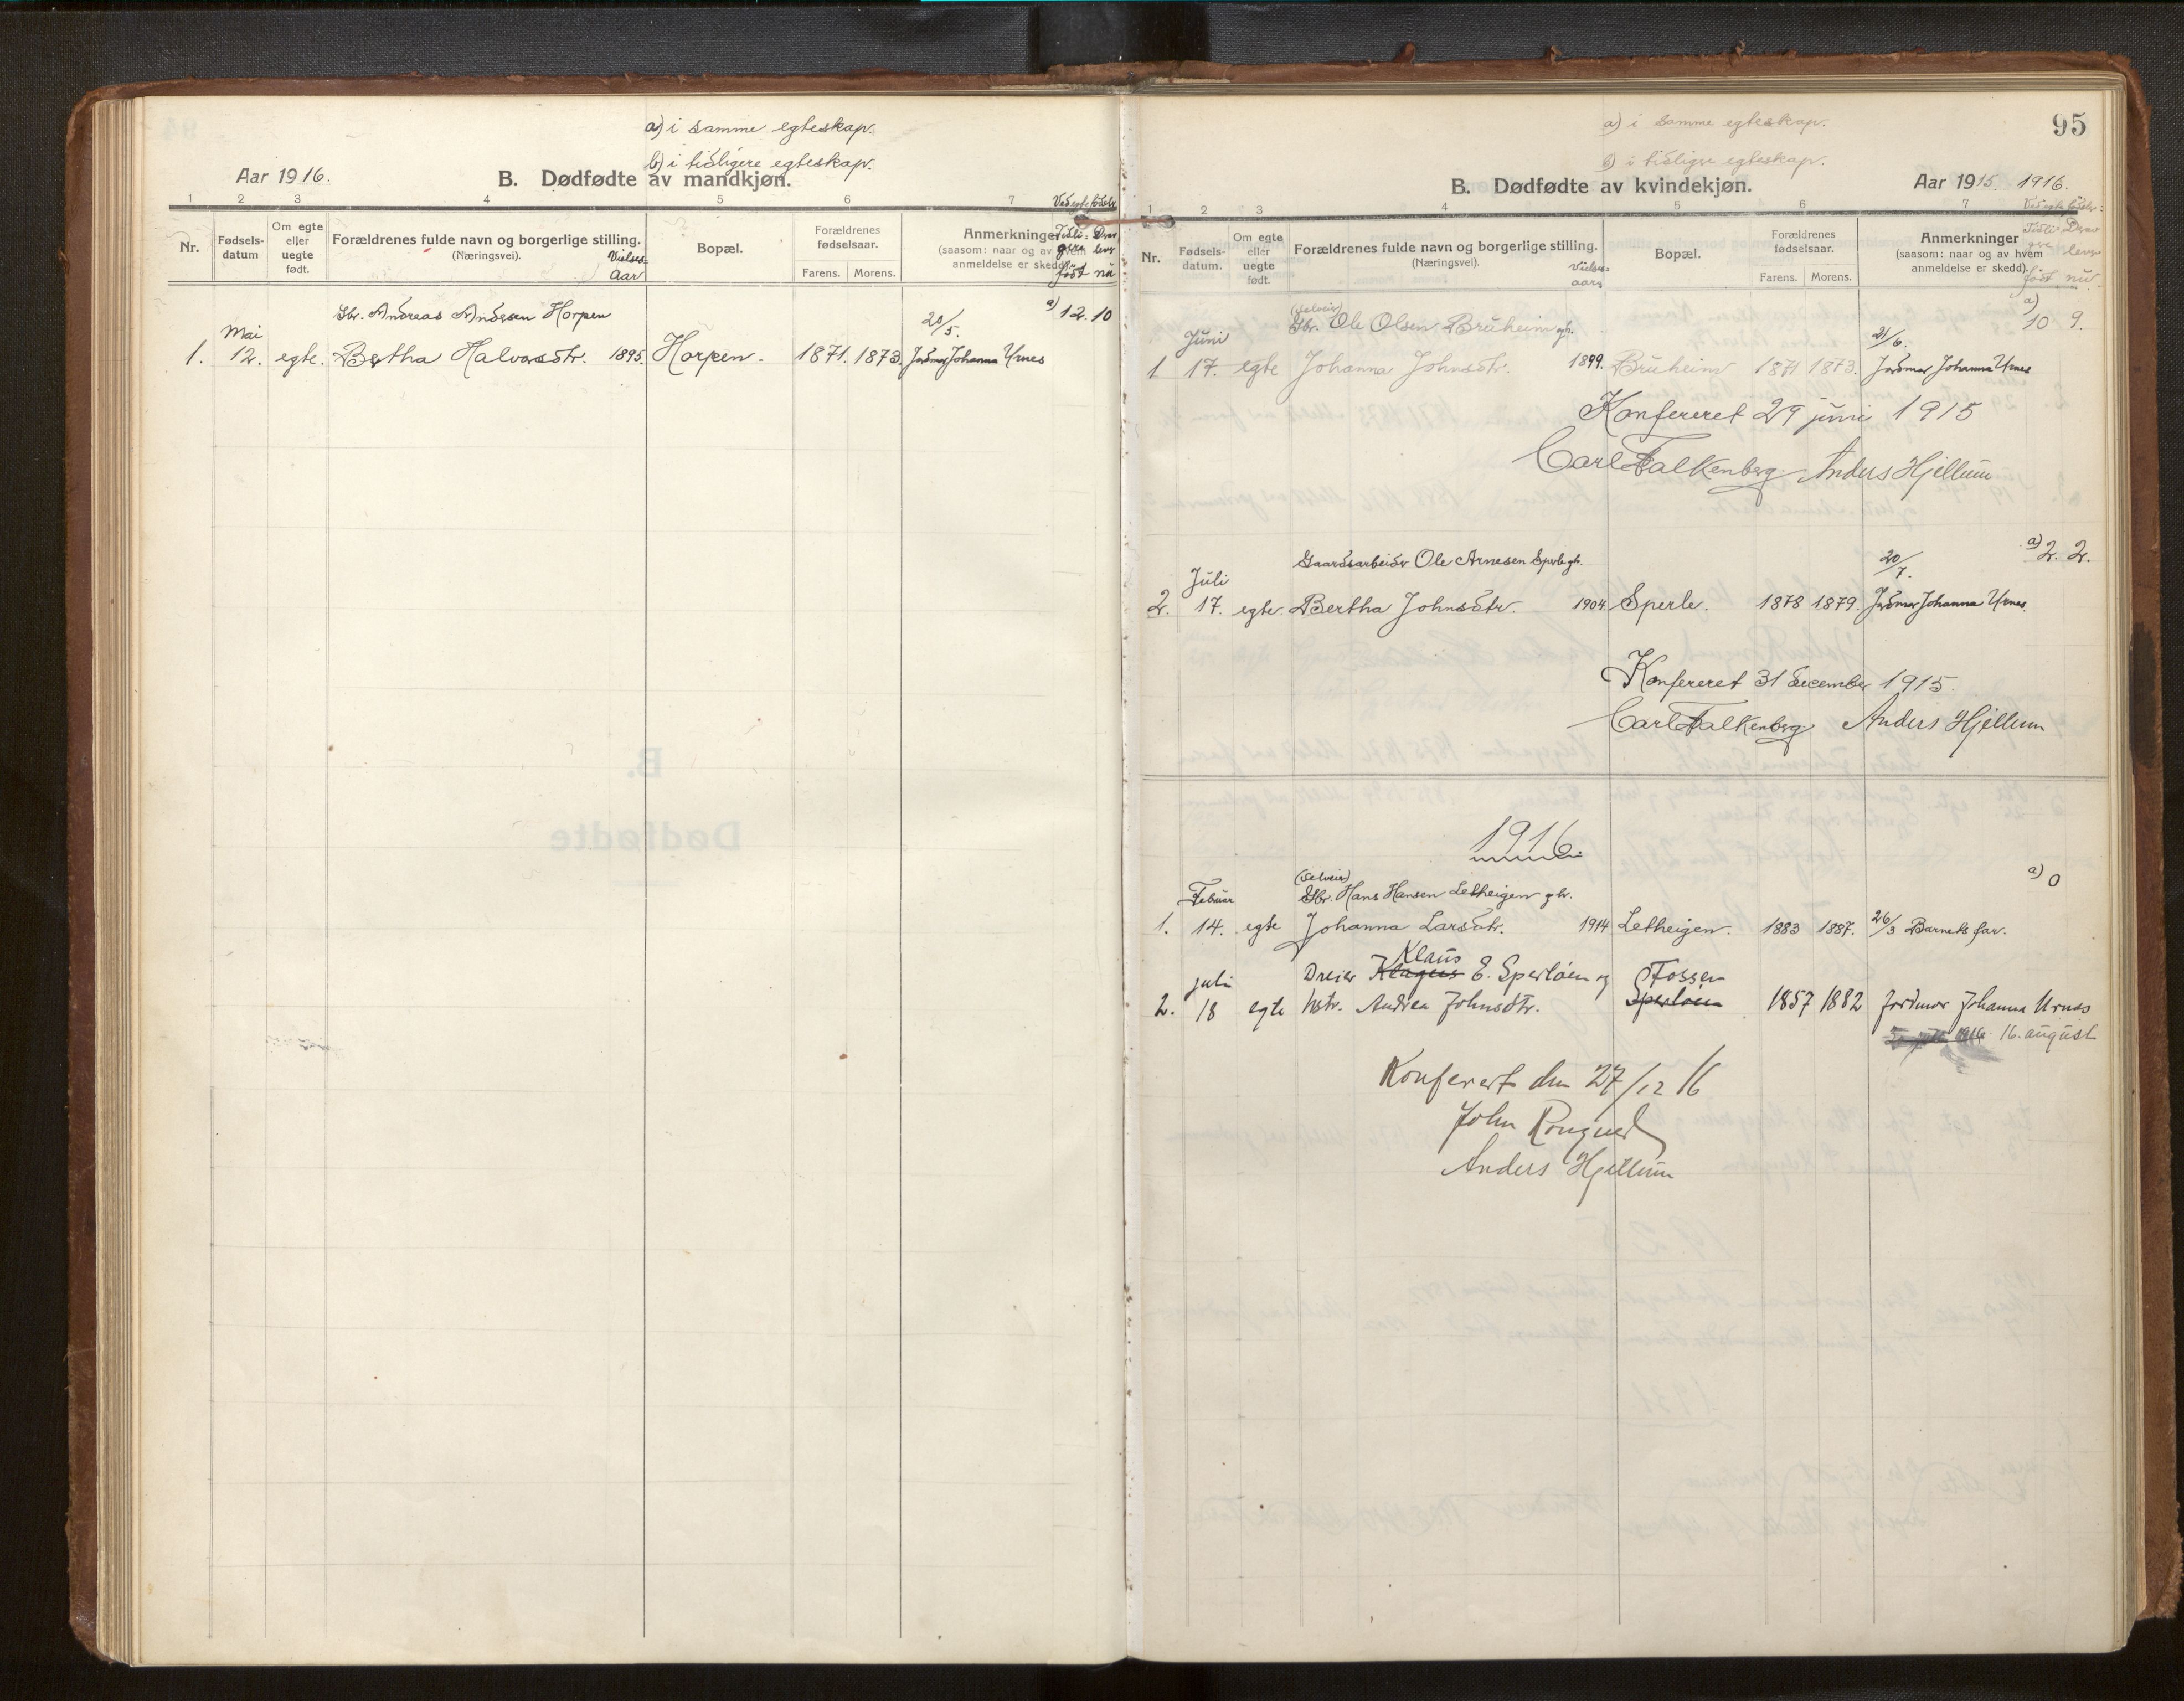 a) i samme egteskap.
b) i tidligere egteskap.
Aar 1916.
B. Dødfødte av mandkjøn.
1 2 3 4 5 6 7
Nr.
Fødsels-
datum
Om egte
eller
uegte
født.
Forældrenes fulde navn og borgerlige stilling.
(Næringsvei).
Vielses-
aar
Bopæl.
Forældrenes
fødselsaar.
Farens. Morens.
Anmerkninger
(saasom: naar og av hvem
anmeldelse er skedd).
Tidli= Derav
gere lever
født nu
Gbr. Andreas Andersen Horpen 20/5. a) 12. 10
Mai
1. 12. egte. Bertha Halvorsdtr. 1895 Horpen. 1871. 1873. Jordmor Johanna Urnes
B.
Dødfødte
95
a) i samme egteskap.
b) i tidligere egteskap.
B. Dødfødte av kvindekjøn.
Aar 1915. 1916.
1 2 3 4 5 6 7
Nr.
Fødsels-
datum.
Om egte
eller
uegte
født.
Forældrenes fulde navn og borgerlige stilling.
(Næringsvei).
Vielses=
aar
Bopæl.
Forældrenes
fødselsaar.
Farens. Morens.
Anmerkninger
(saasom: naar og av hvem
anmeldelse er skedd).
Tidli= Derav
gere lever
født nu.
(Selveier) a)
Juni Gbr. Ole Olsen Bruheim gh. 21/6. 10 9.
1 17. egte Johanna Johnsdtr. 1899. Bruheim 1871 1873. Jordmor Johanna Urnes
Konfereret 29 juni 1915
Carl Falkenberg Anders Hjellum
Gaardsarbeider Ole Arnesen Sperle gh. 20/7. a) 2. 2.
Juli
2. 17. egte. Bertha Johnsdtr. 1904. Sperle. 1878 1879. Jordmor Johanna Urnes.
Konfereret 31 december 1915.
Carl Falkenberg Anders Hjellum
1916.
(Selveier) a) 0
Februar Gbr. Hans Hansen Letheigen gh.
1. 14. egte Johanna Larsdtr. 1914 Letheigen. 1883 1887. 26/3 Barnets far.
Klaus
juli Dreier Klagus E. Sperløen og Fossen
2. 18 egte hstr. Andrea Johnsdtr. Sperløen 1857 1882 Jordmor Johanna Urnes
16. august
Konferert den 27/12 16
John Rongued
Anders Hjellum